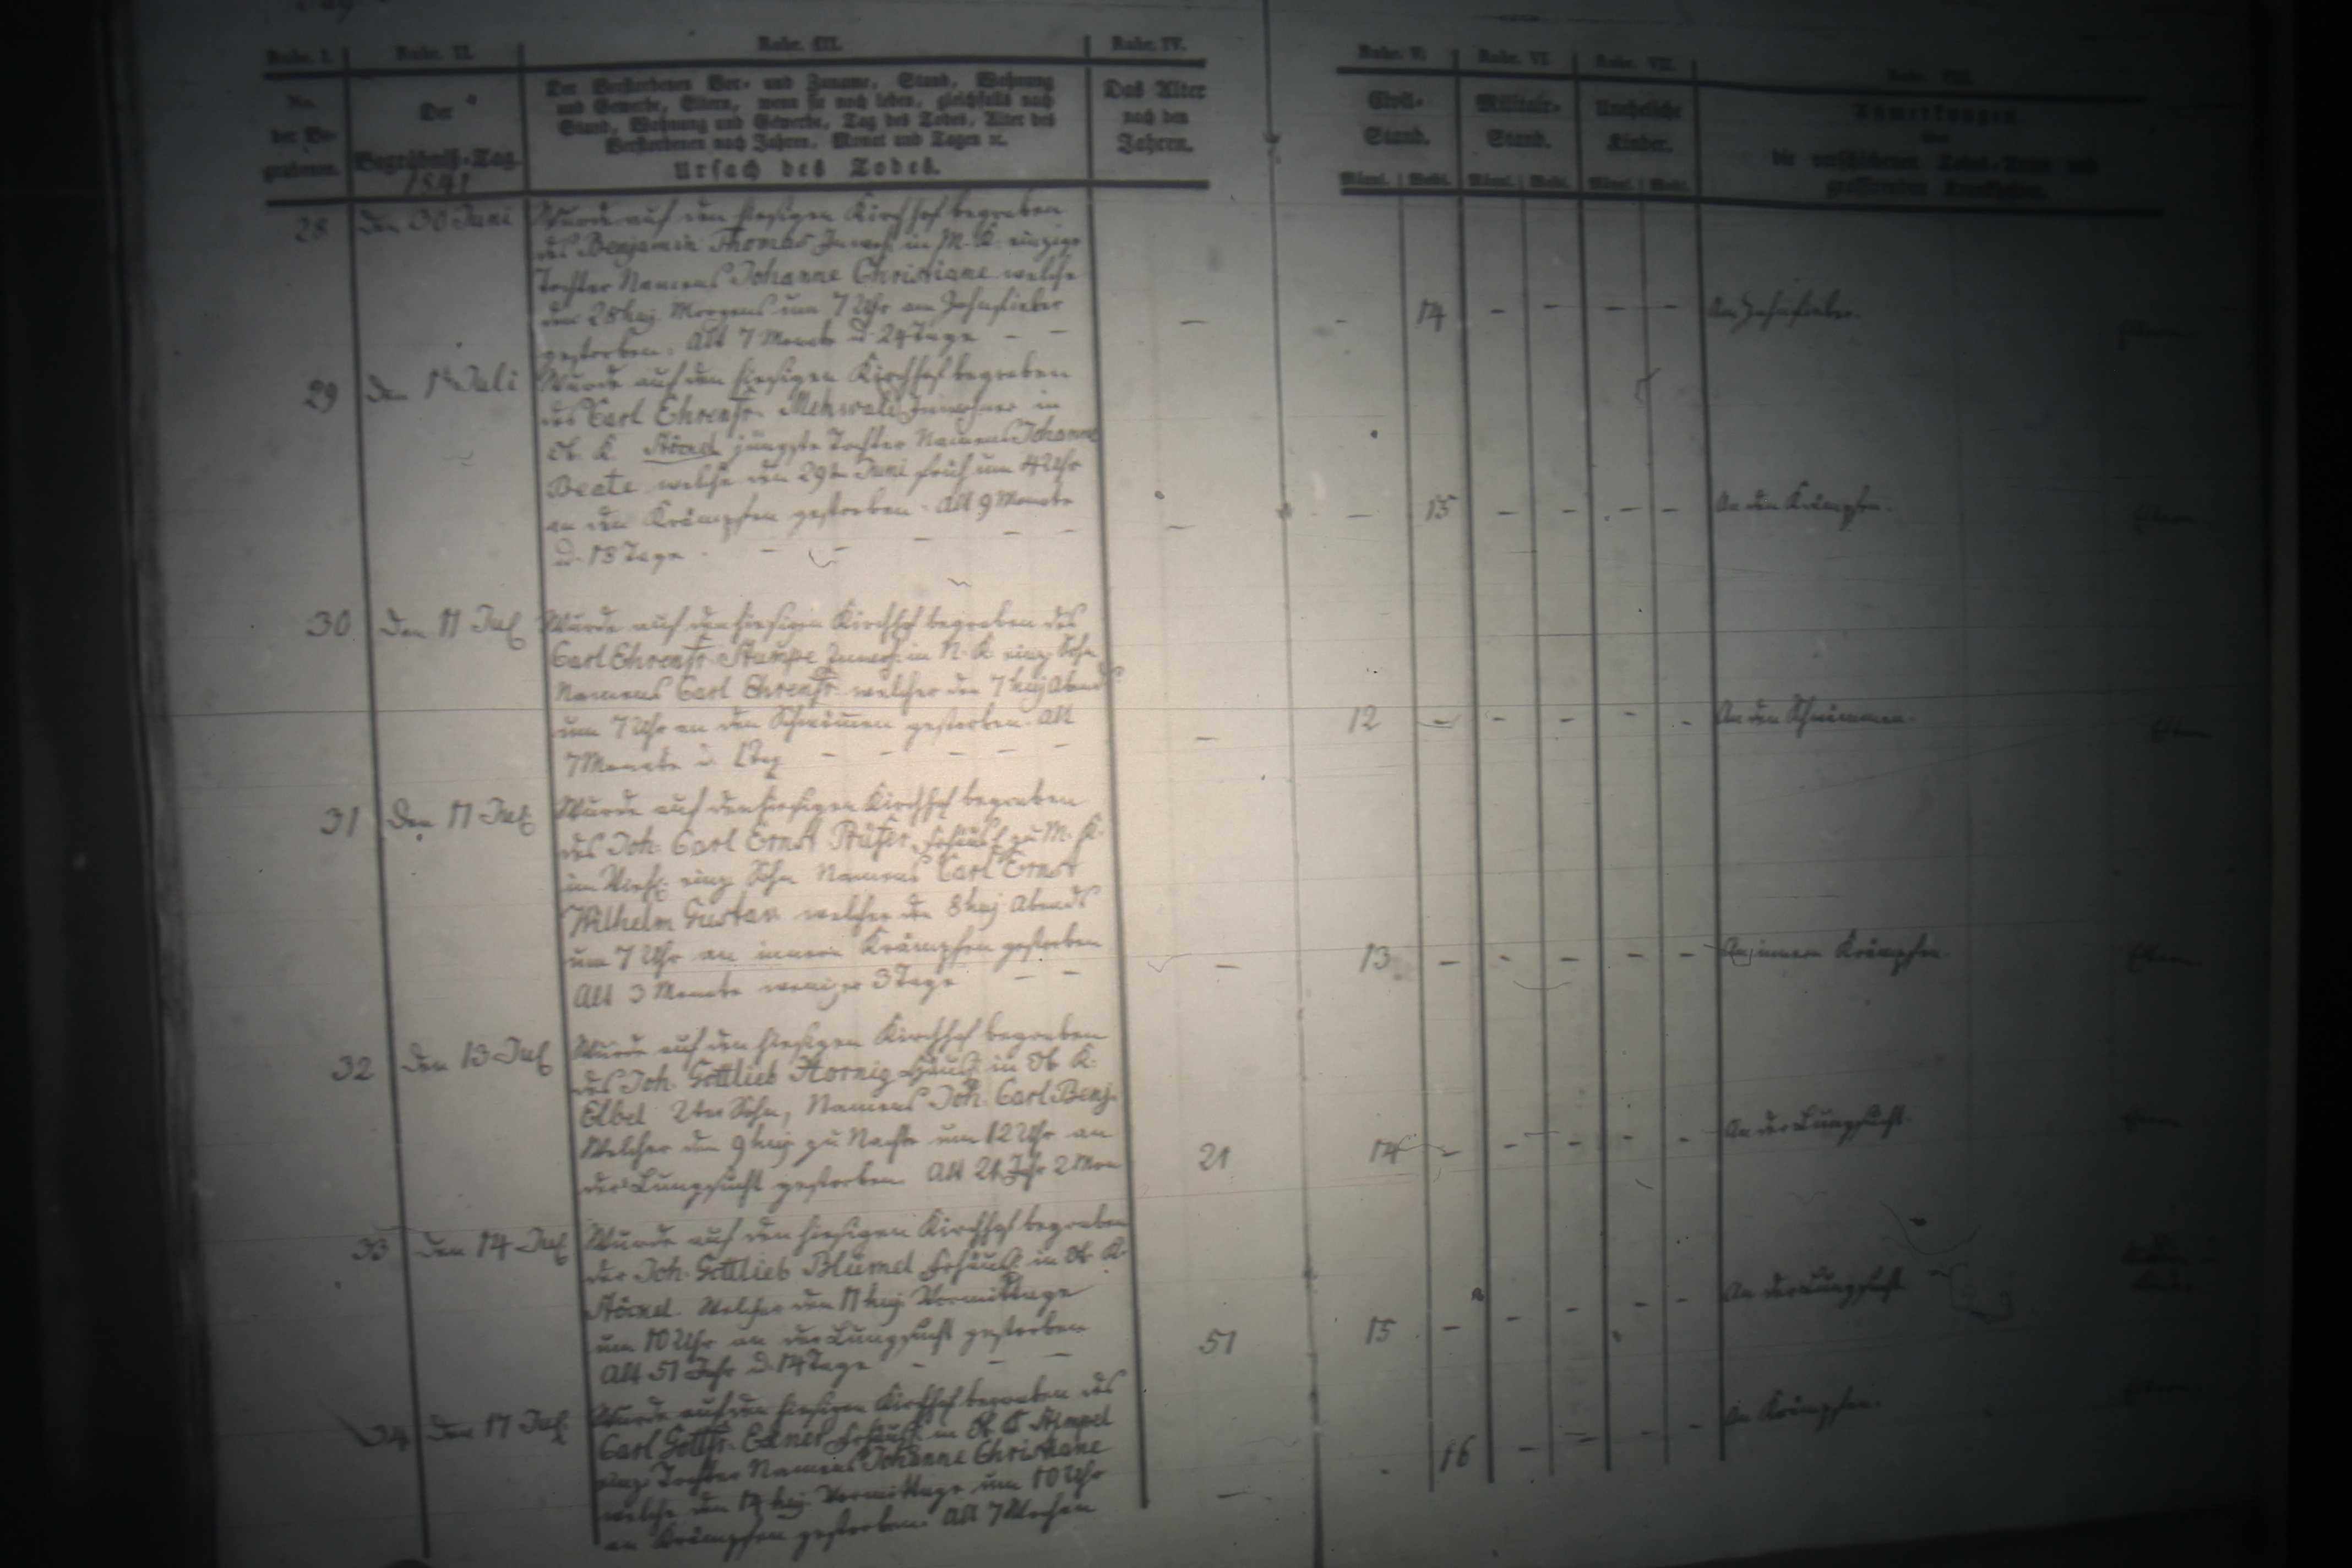 Rubr. I. Rubr. II. Rubr. III. Rubr. IV. Rubr. V. Rubr. VI. Rubr. VII. Rubr. VIII.
No. der Be-grabenen.
Der Begräbniß-Tag.
1841
Der Verstorbenen Vor- und Zuname, Stand, Wohnung
und Gewerbe, Eltern, wenn sie noch leben, gleichfalls nach
Stand, Wohnung und Gewerbe, Tag des Todes, Alter des
Verstorbenen nach Jahren, Monat und Tagen ꝛc.
Ursach des Todes.
Das Alter
nach den
Jahren.
Civil-
Stand.
Militair-
Stand.
Uneheliche
Kinder.
Anmerkungen
über
die verschiedenen Todes-Arten und
grassirenden Krankheiten.
Männl. Weibl. Männl. Weibl. Männl. Weibl.
28 den 30 Juni Wurde auf den hiesigen Kirchhof begraben
des Benjamin Thomas Inwoh. in M. K. einzige
Tochter Namens Johanne Christiane welche
den 28 huj. Morgens um 7 Uhr am Zahnfieber
gestorben. Alt 7 Monate u. 24 Tage – –
– – 14 – – – – Am Zahnfieber.
29 den 1t Juli Wurde auf den hiesigen Kirchhof begraben
des Carl Ehrenfr. Mehwald Inwohner in
Ob. K. jüngste Tochter Namens Johanne
Beate welche den 29t Juni früh um 4 Uhr
an den Krämpfen gestorben. Alt 9 Monate
u. 13 Tage – – – – –
– – 15 – – – – An den Krämpfen.
30 den 11 Jul Wurde auf den hiesigen Kirchhof begraben des
Carl Ehrenfr. Stumpe Inwoh. in N. K. einz. Sohn
Namens Carl Ehrenfr. welcher den 7 huj Abends
um 7 Uhr an den Schwämmen gestorben. Alt
7 Monate u. 1 Tag – – – – –
– 12 – – – – – An den Schwämmen.
31 den 11 Jul Wurde auf den hiesigen Kirchhof begraben
des Joh. Carl Ernst Prüfer Frhäusl. zu M. K.
einz. Sohn Namens Carl Ernst
Wilhelm Gustav welcher den 8 huj Abends
um 7 Uhr an innern Krämpfen gestorben
Alt 3 Monate weniger 3 Tage – –
– 13 – – – – – An innern Krämpfen.
32 den 13 Jul Wurde auf den hiesigen Kirchhof begraben
des Joh. Gottlieb Hornig Häusl. in Ob. K.
Elbel 2ter Sohn, Namens Joh. Carl Benj.
Welcher den 9 huj zu Nacht um 12 Uhr an
der Lungsucht gestorben. Alt 21 Jahr 2 Mon
21 14 – – – – – An der Lungsucht.
33 den 14 Jul Wurde auf den hiesigen Kirchhof begraben
der Joh. Gottlieb Blümel Frhäusl. in Ob. K.
Welcher den 11 huj. Vormittags
um 10 Uhr an der Lungsucht gestorben
Alt 51 Jahr u. 14 Tage – – –
51 15 – – – – – An der Lungsucht
34 den 17 Jul Wurde auf den hiesigen Kirchhof begraben des
Carl Gottfr. Frhäusl. in Ob. K.
einz. Tochter Namens Johanne Christiane
welche den 14 huj. Vormittags um 10 Uhr
an Krämpfen gestorben. Alt 7 Wochen
– 16 – – – – An Krämpfen.